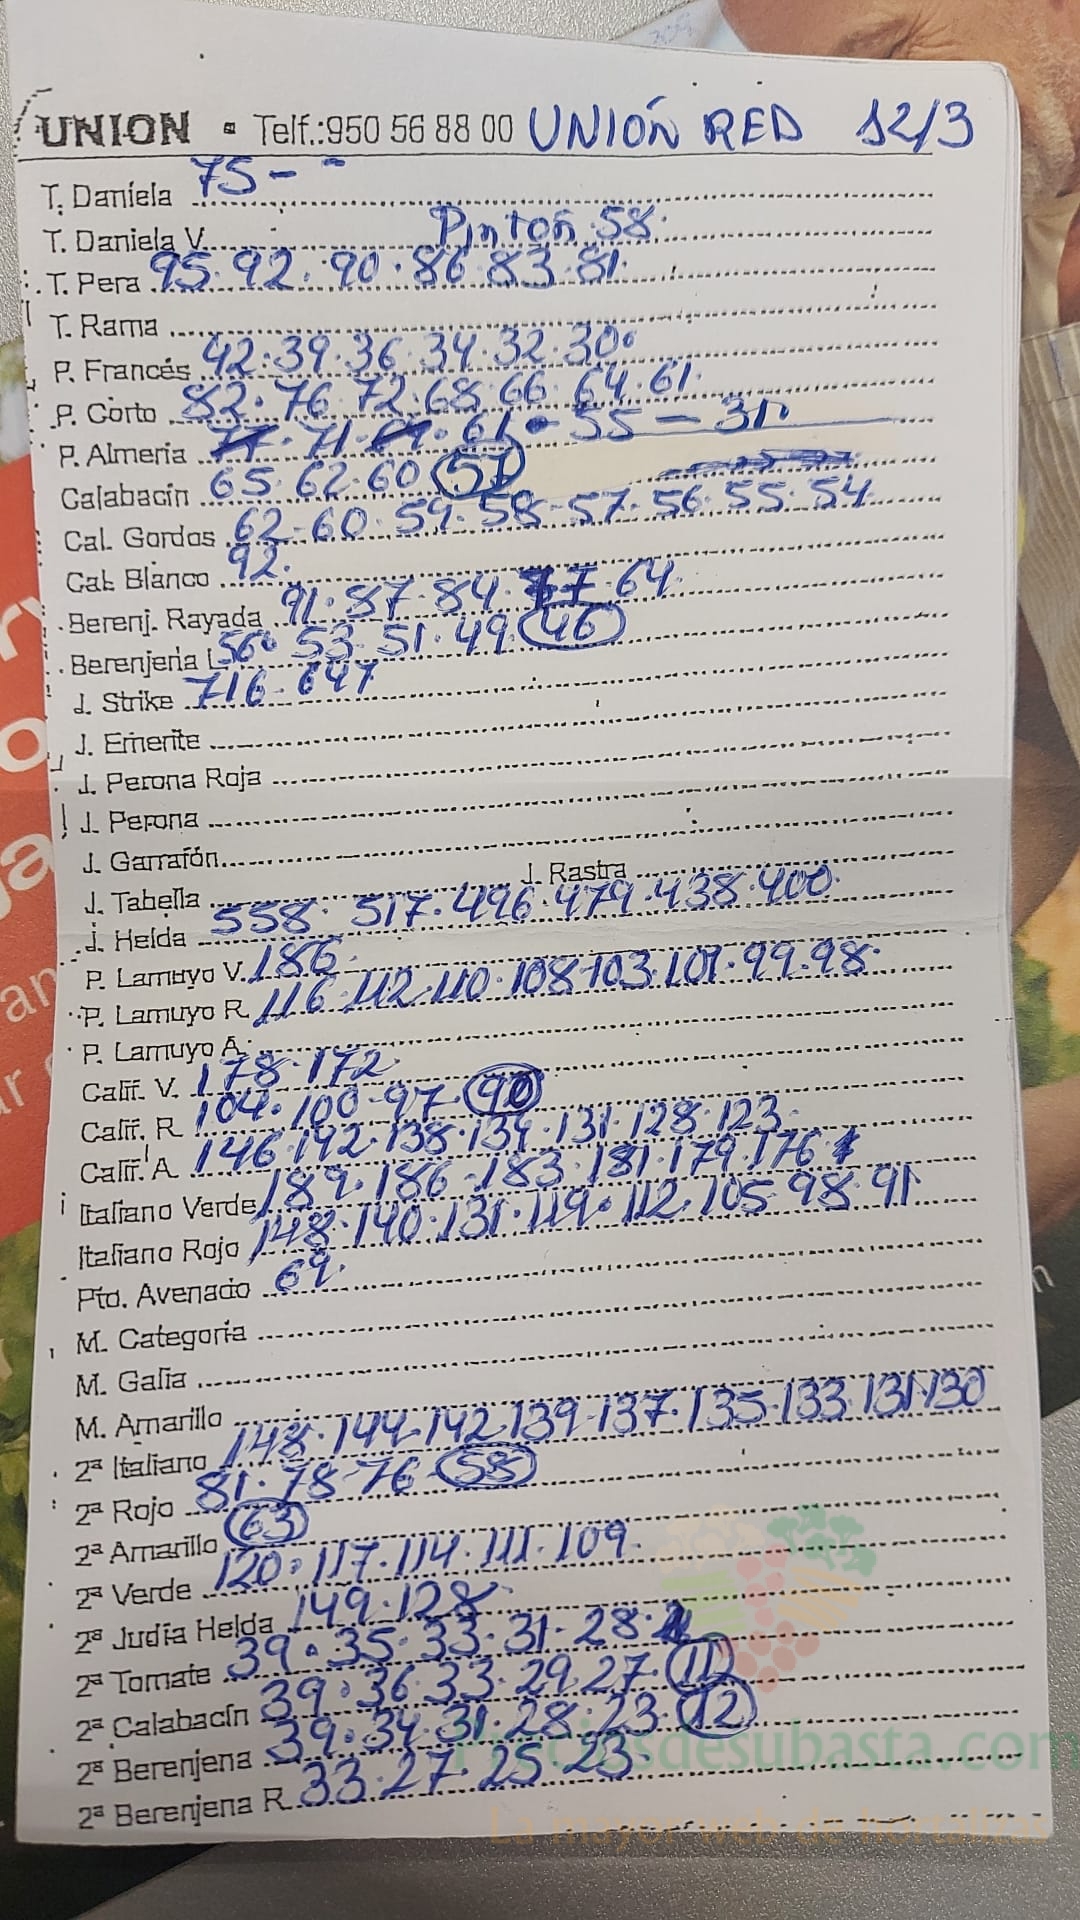 UNION - Telf.:950 56 88 00 UNIÓN RED 12/3
T. Daniela 75-
T. Daniela V. Pintón 58.
T. Pera 95. 92. 90. 86. 83. 81.
T. Rama
P. Francés 42. 39. 36. 34. 32. 30.
P. Corto 82. 76. 72. 68. 66. 64. 61.
P. Almeria 71. 61. 55 - 31
Calabacín 65. 62. 60 57
Cal. Gordos 62-60. 59. 58-57. 56. 55. 54
Cal. Blanco 92.
Berenj. Rayada 91. 87. 84. 77. 64.
Berenjena L. 56. 53. 51. 49. 46
J. Strike 716. 647
J. Emerite
J. Perona Roja
J. Perona
J. Garrafón
J. Tabella J. Rastra
J. Helda 558. 517. 496. 479. 438. 400.
P. Lamuyo V. 186.
P. Lamuyo R. 116. 112. 110. 108-103. 101. 99. 98.
P. Lamuyo A.
Calif. V. 178. 172
Calif. R. 104. 100-97. 90
Calif. A. 146. 142. 138. 134. 131. 128. 123.
Italiano Verde 189. 186. 183. 181. 179. 176
Italiano Rojo 148. 140. 131. 119. 112. 105-98. 91
Pto. Avenado 69.
M. Categoria
M. Galia
M. Amarillo
2ª Italiano 148. 144. 142. 139-137. 135. 133. 131. 130
2ª Rojo 81. 78-76. 58
2ª Amarillo 63
2ª Verde 120. 117. 114. 111. 109.
2ª Judía Helda 149. 128.
2ª Tomate 39. 35. 33. 31-28.
2ª Calabacín 39. 36. 33. 29. 27. 11
2ª Berenjena 39. 34. 31. 28. 23. 12
2ª Berenjena R. 33. 27. 25. 23.
preciosdesubasta.com
La mayor web de hortalizas